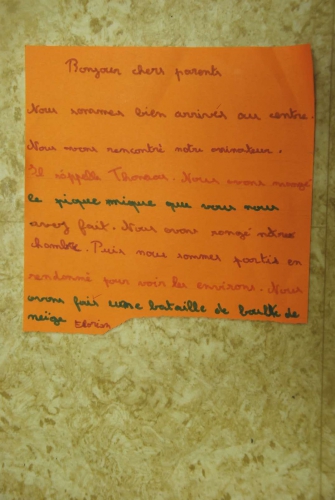 Bonjour chers parents
Nous sommes bien arrivés au centre.
Nous avons rencontré notre animateur.
Il s'appelle Thomas. Nous avons mangé
le pique nique que vous nous
avez fait. Nous avons rangé notre
chambre. Puis nous sommes partis en
randonné pour voir les environs. Nous
avons fait une bataille de boulle de
neige